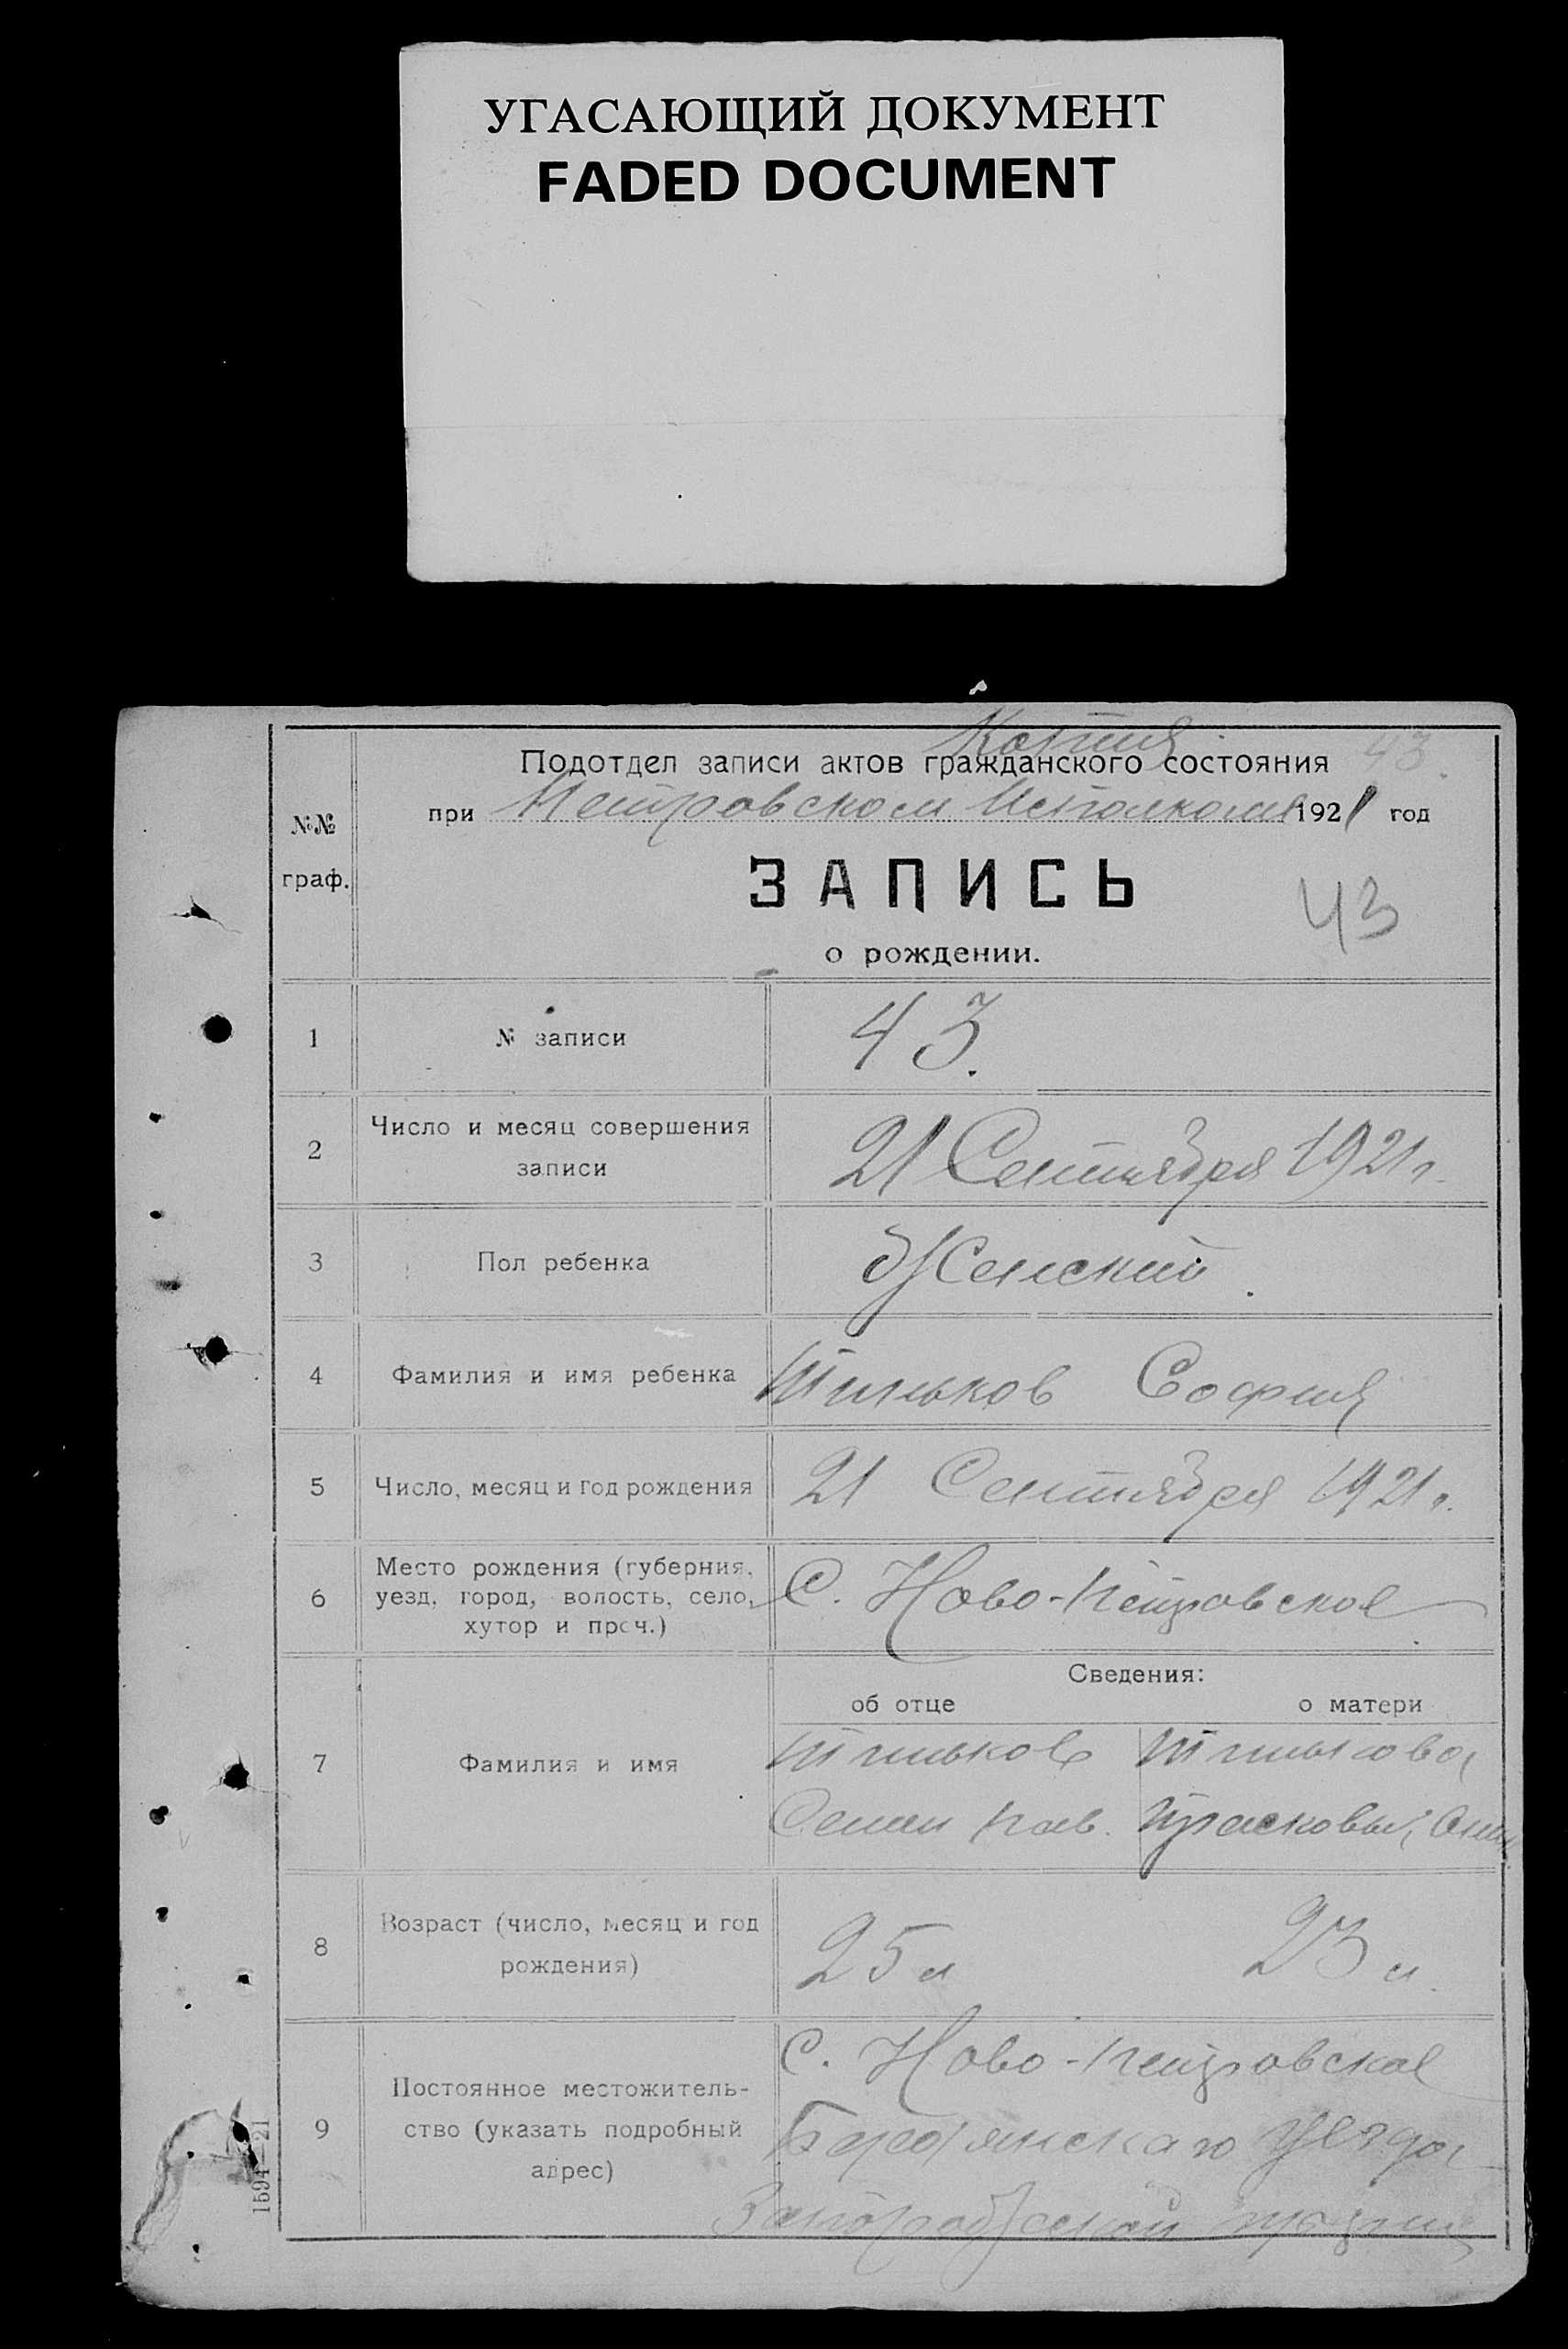 УГАСАЮЩИЙ ДОКУМЕНТ
FADED DOCUMENT
Копия
Подотдел записи актов гражданского состояния 43.
при Петровском Исполкоме 1921 год
№№
граф.
ЗАПИСЬ
43
о рождении.
1 № записи 43.
2 Число и месяц совершения
записи
21 Сентября 1921 г.
3 Пол ребенка Женский.
4 Фамилия и имя ребенка София
5 Число, месяц и год рождения 21 Сентября 1921 г.
6 Место рождения (губерния,
уезд, город, волость, село,
хутор и проч.)
С. Ново-Петровское
Сведения:
об отце о матери
7 Фамилия и имя
Семен Пав. Прасковья
8 Возраст (число, месяц и год
рождения)
25 л 23 л.
9 Постоянное местожитель-
ство (указать подробный
адрес)
С. Ново-Петровское
Бердянскаго Уезда
Запорожской
1594—21